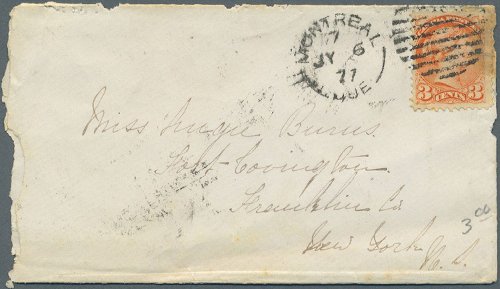 MONTREAL
7
JY 6
77
QUE
3 CENTS 3
Miss Angie Burns
Fort Covington
Franklin Co
New York
3.00